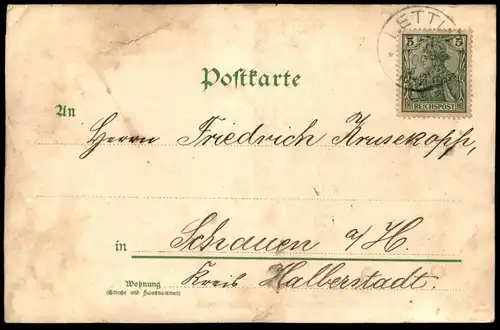 LETTI
5 5
REICHSPOST
Postkarte
An
Herrn Friedrich Krusekopf,
in Schauen a/H.
Wohnung Kreis Halberstadt.
(Straße und Hausnummer)